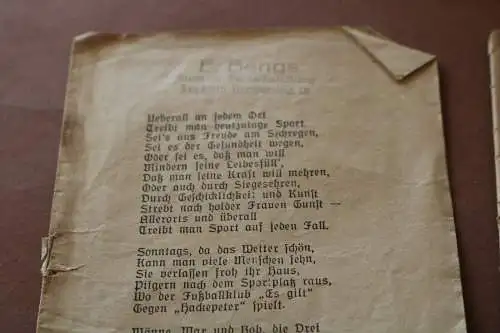 Ueberall an jedem Ort
Treibt man heutzutage Sport
Sei's aus Freude am Sichregen,
Sei es der Gesundheit wegen,
Oder sei es, daß man will
Mindern seine Leibesfüll',
Daß man seine Kraft will mehren,
Oder auch durch Siegesehren,
Durch Geschicklichkeit und Kunst
Strebt nach holder Frauen Gunst —
Allerorts und überall
Treibt man Sport auf jeden Fall.
Sonntags, da das Wetter schön,
Kann man viele Menschen sehn,
Sie verlassen froh ihr Haus,
Pilgern nach dem Sportplatz raus,
Wo der Fußballklub „Es gilt"
Gegen „Hackepeter" spielt.
Männe, Max und Bob, die Drei